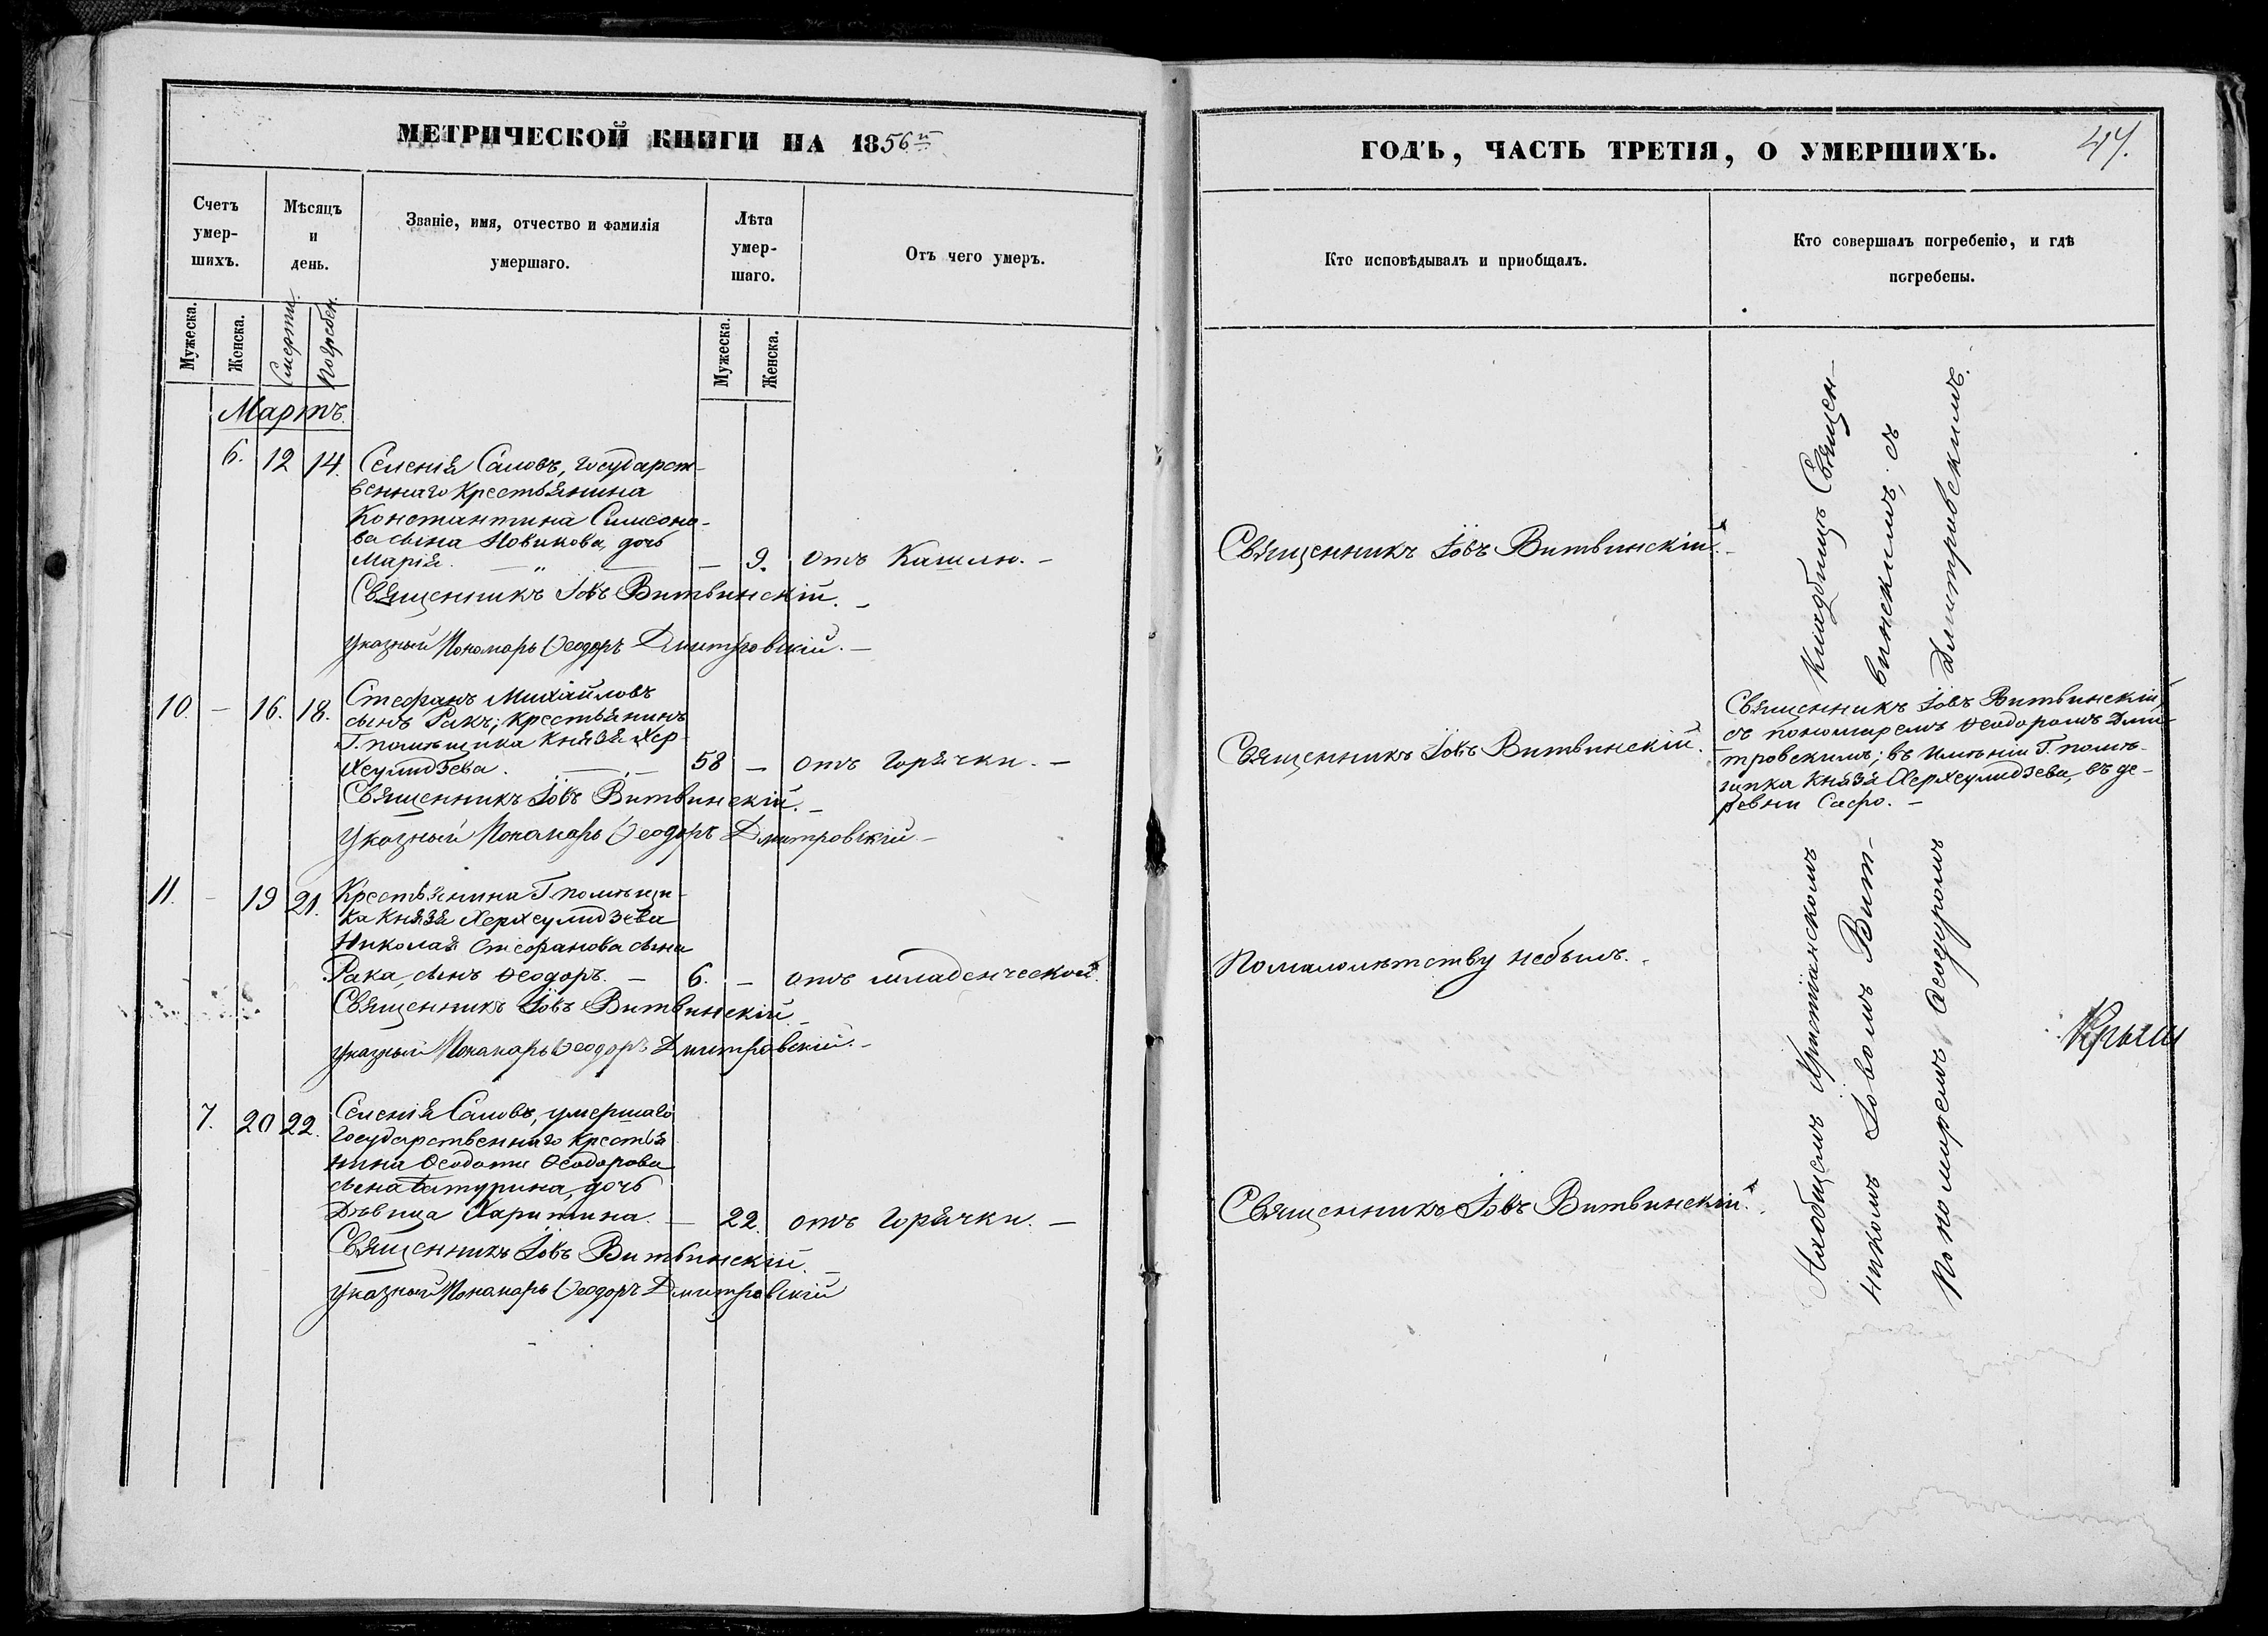 МЕТРИЧЕСКОЙ КНИГИ НА 1856й
Счетъ умер-шихъ.
Мѣсяцъ и день.
Званіе, имя, отчество и фамилія умершаго.
Лѣта умер-шаго.
Отъ чего умеръ.
Мужеска.
Женска.
Смерти.
Погребен.
Мужеска.
Женска.
Мартъ.
6. 12 14. Селенія Саловъ, государст-
веннаго крестьянина
Константина Симеоно-
ва сына Новикова, дочь
Марія. — „ — — 9. отъ Кашлю. —
Священникъ Іовъ Витвинскій. —
Указный Пономарь Ѳеодоръ Дмитровскій. —
10. — 16. 18. Стефанъ Михайловъ
сынъ Ракъ; крестьянинъ
Г. помѣщика Князя Хер-
хеулидзева. — 58 — отъ Горячки. —
Священникъ Іовъ Витвинскій. —
Указный Пономарь Ѳеодоръ Дмитровскій —
11. — 19 21. Крестьянина Г. помѣщи-
ка Князя Херхеулидзева
Николая Стефанова сына
Рака, сынъ Ѳеодоръ. — 6. — отъ младенческой.
Священникъ Іовъ Витвинскій —
Указный Пономарь Ѳеодоръ Дмитровскій. —
7. 20 22. Селенія Саловъ, умершаго
Государственнаго крестья
нина Ѳеодота Ѳеодорова
сына Батурина, дочь
Дѣвица Харитина. — 22. отъ Горячки. —
Священникъ Іовъ Витвинскій. —
Указный Пономарь Ѳеодоръ Дмитровскій
ГОДЪ, ЧАСТЬ ТРЕТІЯ, О УМЕРШИХЪ.
44.
Кто исповѣдывалъ и пріобщалъ.
Кто совершалъ погребеніе, и гдѣ
погребены.
Священникъ Іовъ Витвинскій. —
Священникъ Іовъ Витвинскій.
Священникъ Іовъ Витвинскій,
съ пономаремъ Ѳеодоромъ Дми-
тровскимъ; въ имѣніи Г. помѣ-
щика Князя Херхеулидзева, въ де-
ревни Сафо. —
Помалолѣтству небылъ. —
Священникъ Іовъ Витвинскій.
На общемъ Христіанскомъ Кладбищѣ Священ-
никомъ Іовомъ Вит-винскимъ, съ
Пономаремъ Ѳеодоромъ Дмитровскимъ.